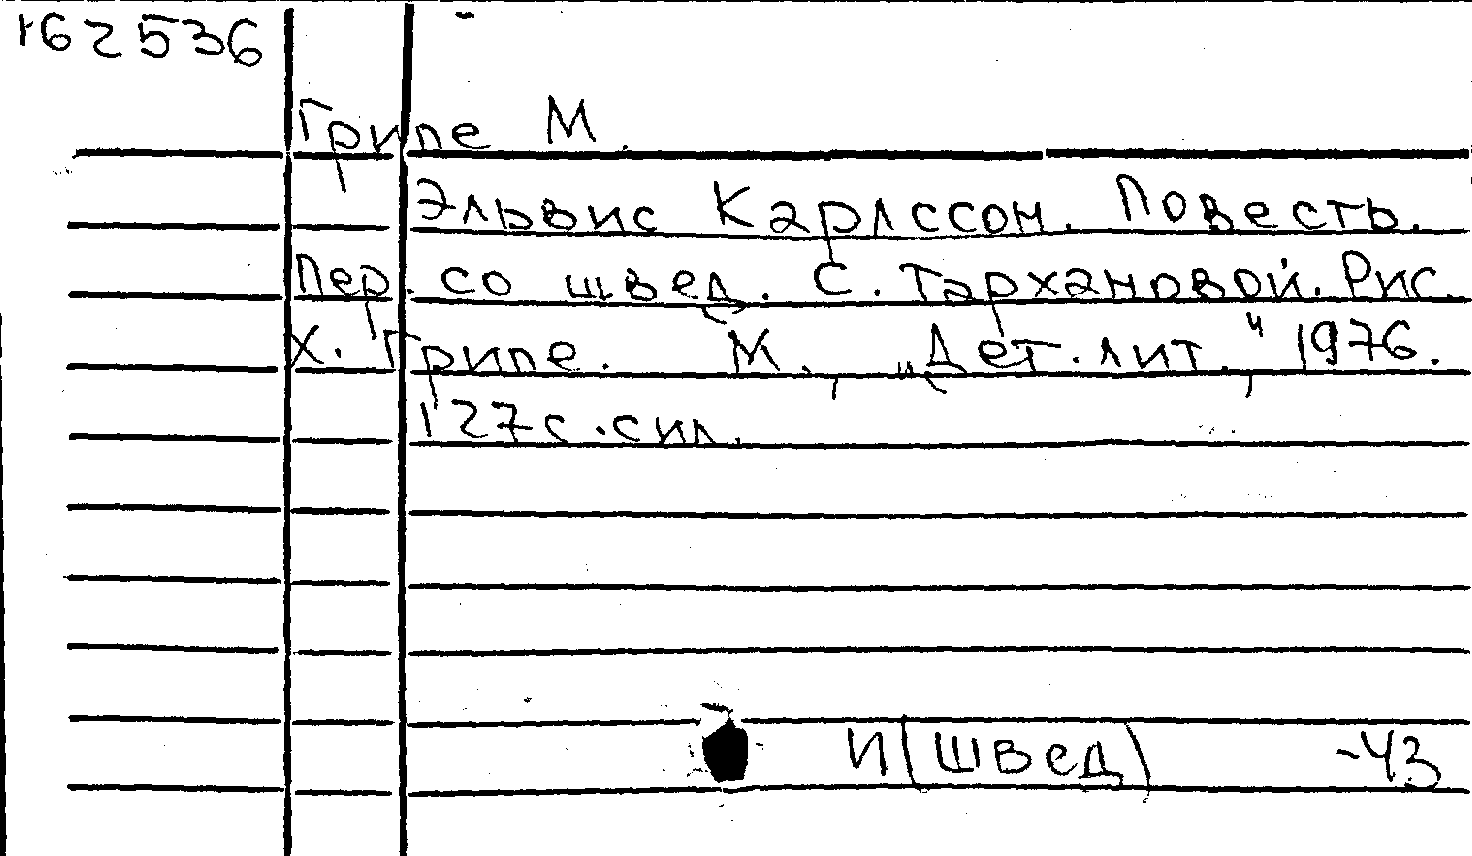 162536
Грипе М.
Эльвис Карлссон. Повесть.
Пер. со швед. С. Тархановой. Рис.
Х. Грипе. М., „Дет. лит.", 1976.
127 с. с ил.
И(ШВЕД) -43